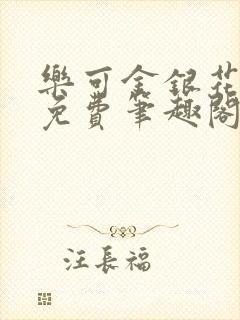 樂可金銀花
免費筆趣閣
汪長福